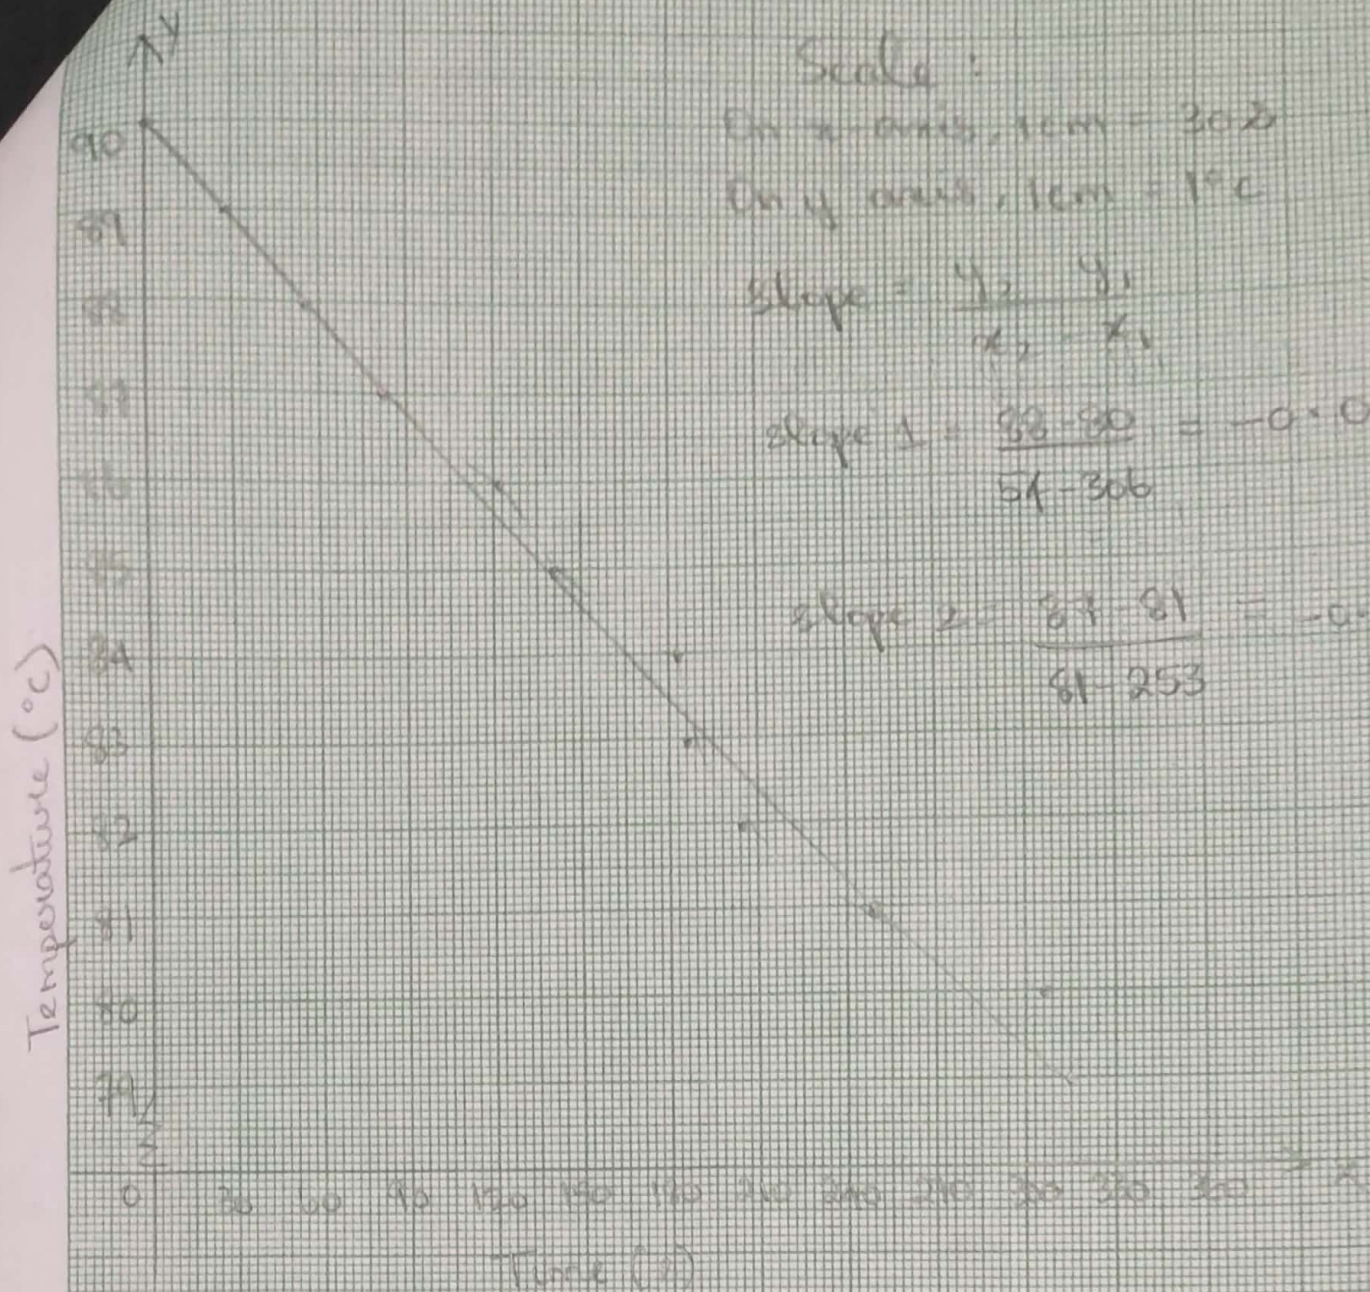 y
Scale :
On x-axis, 1cm = 30s
On y axis, 1cm = 1°C
slope = y₂ - y₁
x₂ - x₁
slope 1 = 88-80 = -0.0
54-306
slope 2 = 87-81 = -0
81-253
90
89
88
87
86
85
84
83
82
81
80
79
Temperature (°C)
0 30 60 90 120 150 180 210 240 270 300 330 360 x
Time (s)